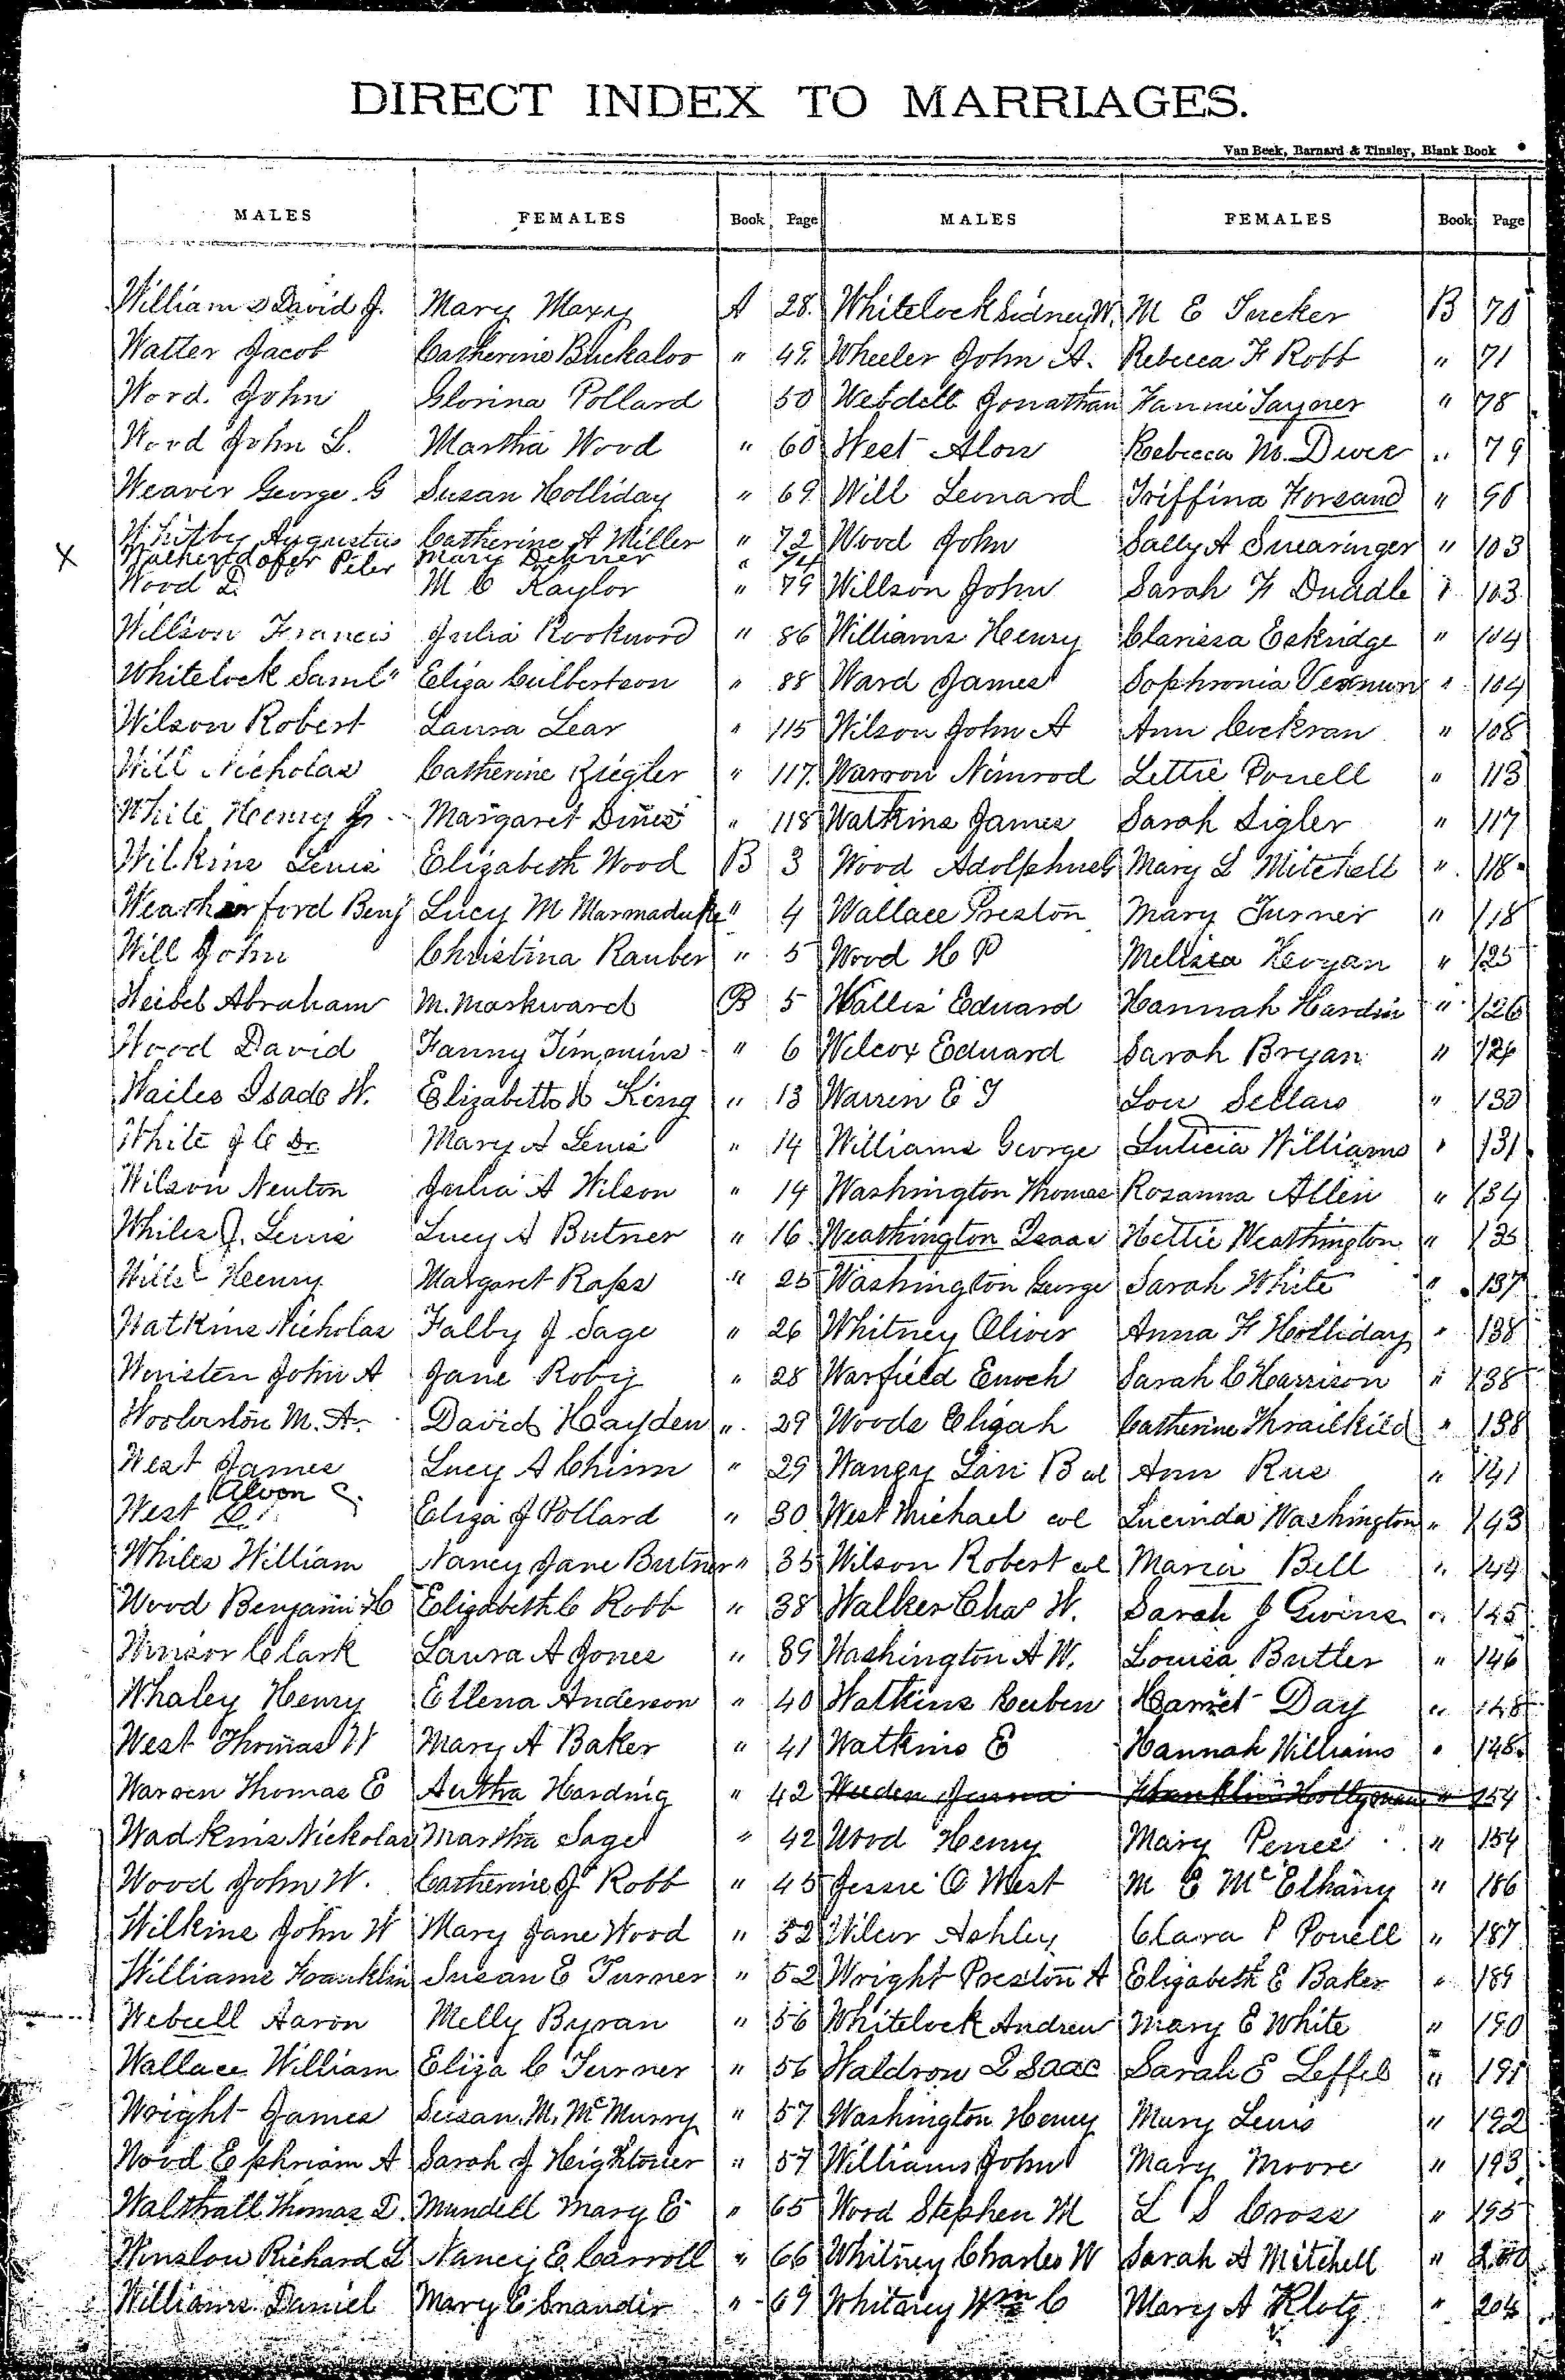 DIRECT INDEX TO MARRIAGES.
Van Beek, Barnard & Tinsley, Blank Book
MALES FEMALES Book Page MALES FEMALES Book Page
Williams David J. Mary Maxy A 28. Whitelock Sidney W. M E Tucker B 70
Walter Jacob Catherine Buckaloo " 49 Wheeler John A. Rebecca F Robb " 71
Word John Glorina Pollard 50 Webdell Jonathan Fannie Sayner " 78
Word John L. Martha Wood " 60 West Alon Rebecca " 79
Weaver George G Susan Holliday " 69 Will Leonard Triffina Forsand "
Whitby Augustus Catherine A Miller " 72 Wood John Sally A Swearinger " 103
X Peter Mary " 74
Wood D M C Kaylor " 79 Willson John Sarah F " 103
Willson Francis Julia Rookword " 86 Williams Henry Clarissa Eskridge " 104
Whitelock Saml Eliza Culbertson " 88 Ward James Sophronia " 104
Wilson Robert Laura Lear " 115 Wilson John A Ann Cockran " 108
Will Nicholas Catherine Ziegler " 117. Warron Nimrod Lettie Powell " 113
White Henry Jr Margaret Dines " 118 Watkins James Sarah Sigler " 117
Wilkins Lewis Elizabeth Wood B 3 Wood Mary L Mitchell " 118
Weatherford Benj Lucy M Marmaduke " 4 Wallace Preston Mary Turner " 118
Will John Christina Rauber " 5 Wood H P Melissa Kevyan " 125
Weibel Abraham M. Markward B 5 Wallis Edward Hannah Hardin " 126
Wood David Fanny Timmins " 6 Wilcox Edward Sarah Bryan " 126
Wailes Isado W. Elizabeth King " 13 Warren E T Lou Sellars " 130
White J C Dr. Mary A Lewis " 14 Williams George Luticia Williams " 131
Wilson Newton Julia A Wilson " 14 Washington Thomas Rosanna Allen " 134
Whiles J. Lewis Lucy A Butner " 16 Weathington Isaac Hettie Weathington " 135
Wills Henry Margaret Rapss " 25 Washington George Sarah White " 137
Watkins Nicholas Falby J Sage " 26 Whitney Oliver Anna F Holliday " 138
Winsten John A Jane Roby " 28 Warfield Enoch Sarah C Harrison " 138
Woolverston M. A. David Hayden " 29 Woods Elijah Catherine Thrailkild " 138
West James Lucy A Chinn " 29 B col Ann Rus " 141
West Alvon C. Eliza J Pollard " 30 West Michael col Lucinda Washington " 143
Whiles William Nancy Jane Butner " 35 Wilson Robert col Maria Bell " 144
Wood Benjamin H Elizabeth C Robb " 38 Walker Chas W. Sarah J Gwins " 145
Winsor Clark Laura A Jones " 39 Washington A W. Louisa Butler " 146
Whaley Henry Ellena Anderson " 40 Watkins Reuben Harriet Day " 148
West Thomas W Mary A Baker " 41 Watkins E Hannah Williams " 148
Warren Thomas E Autha Harding " 42 Weeden " 154
Wadkins Nickolas Martha Sage " 42 Wood Henry Mary Pence " 154
Wood John W. Catherine J Robb " 45 Jessie O West M E McElhany " 186
Wilkins John W Mary Jane Wood " 52 Wilcox Ashley Clara P Powell " 187
Williams Franklin Susan E Turner " 52 Wright Preston A Elizabeth E Baker " 189
Webuell Aaron Melly Byran " 56 Whitelock Andrew Mary E White " 190
Wallace William Eliza C Turner " 56 Waldron Isaac Sarah E Leffel " 191
Wright James Susan. M. McMurry " 57 Washington Henry Mary Lewis " 192
Wood Ephriam A Sarah J Hightower " 57 Williams John Mary Moore " 193
Walthall Thomas D. Mundell Mary E " 65 Wood Stephen M L S Cross " 195
Winslow Richard L Nancy E. Carroll " 66 Whitney Charles W Sarah A Mitchell " 200
Williams Daniel Mary E " 69 Whitney Wm C Mary A Klotz " 204